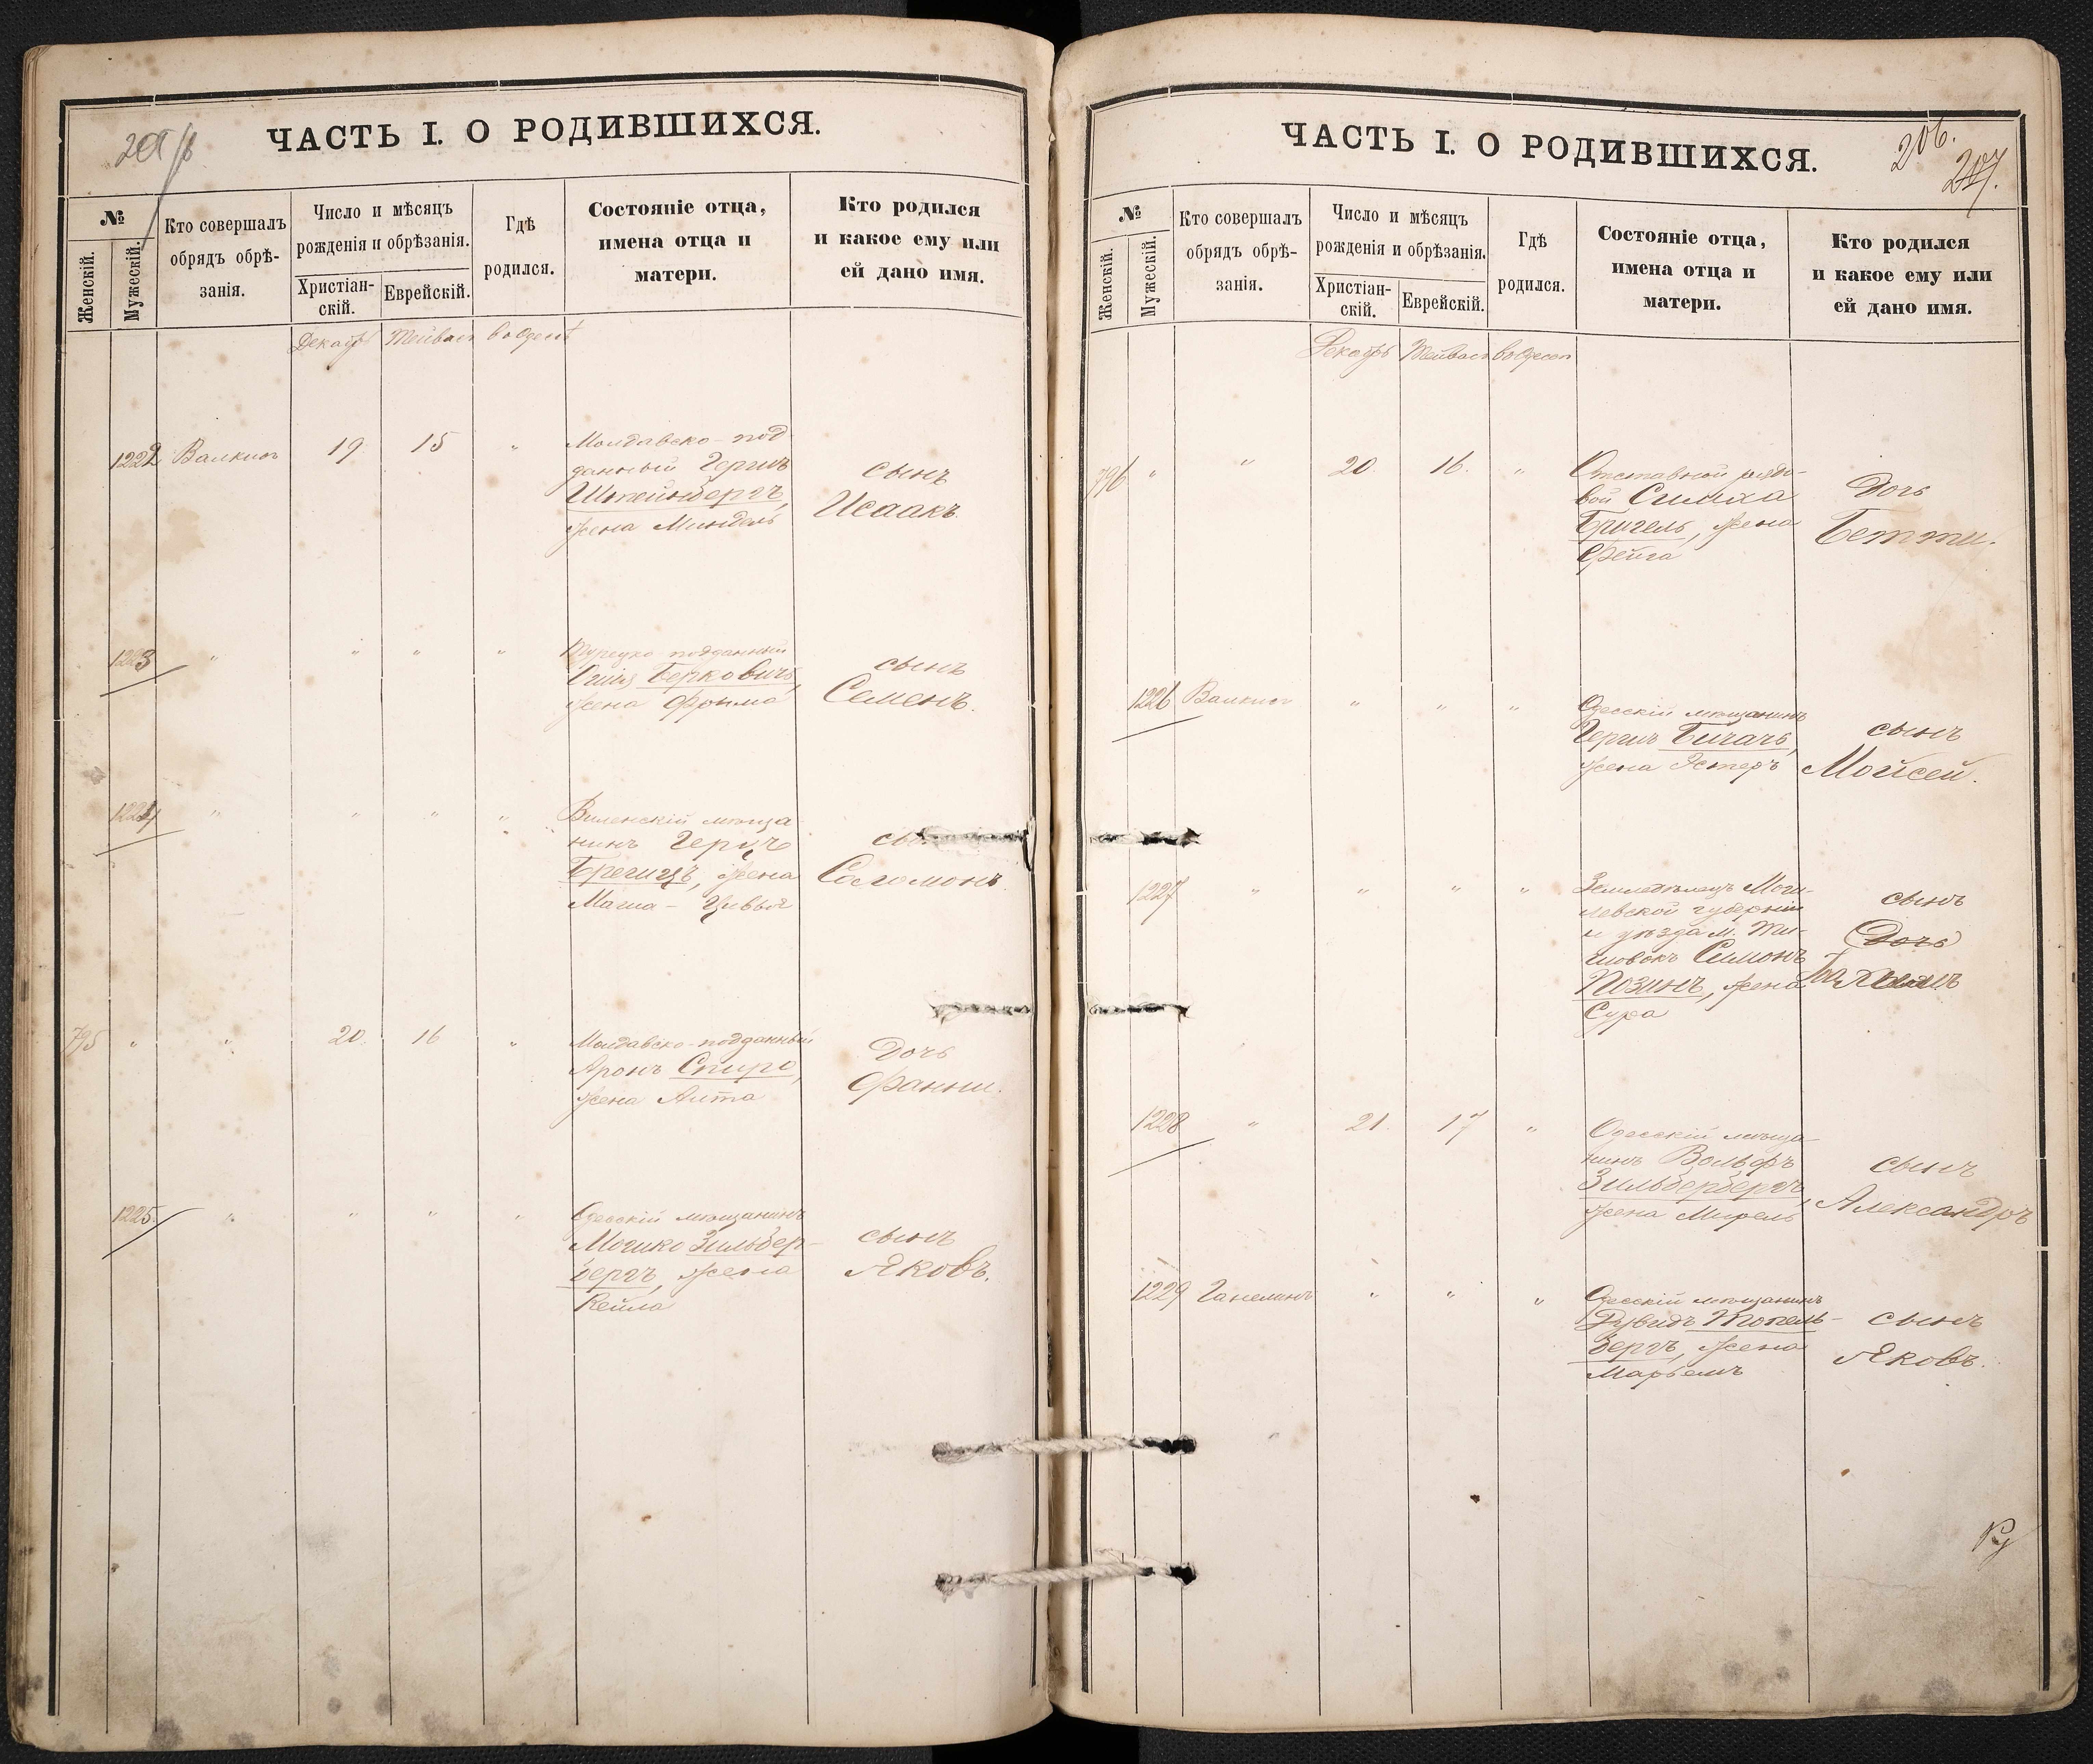 ЧАСТЬ I. О РОДИВШИХСЯ.
№
Женскій.
Мужескій.
Кто совершалъ
обрядъ обрѣ-
занія.
Число и мѣсяцъ
рожденія и обрѣзанія.
Христіан-
скій.
Еврейскій.
Гдѣ
родился.
Состояніе отца,
имена отца и
матери.
Кто родился
и какое ему или
ей дано имя.
Декабрь Тейвасъ въ Одессѣ
1222 Валкинъ 19 15 "
Молдавско-под
данный Гершъ
Штейнбергъ,
жена Миндель
сынъ
Исаакъ.
1223 " " " "
Турецко подданный
Беркович,
жена Фрыма
сынъ
Семенъ.
1224 " " " "
Виленскій мѣща-
нинъ Герцъ
Брегицъ, жена
Маша-Цивья
Соломонъ
795 " " 20. 16 "
Молдавско-подданный
Аронъ Спиро,
жена Анта
Дочь
Фанни.
1225. " " " "
Одесскій мѣщанинъ
Мошко Зильбер-
бергъ, жена
Кейла
сынъ
Яковъ.
ЧАСТЬ I. О РОДИВШИХСЯ.
206.
207.
№
Женскій.
Мужескій.
Кто совершалъ
обрядъ обрѣ-
занія.
Число и мѣсяцъ
рожденія и обрѣзанія.
Христіан-
скій.
Еврейскій.
Гдѣ
родился.
Состояніе отца,
имена отца и
матери.
Кто родился
и какое ему или
ей дано имя.
Декабрь Тейвасъ въ Одессѣ
796 " " 20. 16. "
Отставной рядо-
вой Симха
Бригель, жена
Фейга
Дочь
Бетти.
1226 Валкинъ " " "
Одесскій мѣщанинъ
Гершъ Бигачъ,
жена Эстеръ
сынъ
Мойсей.
1227 " " " "
Земледѣлецъ Моги-
левской губерніи
и уѣзда м.
Симонъ
Позинъ, жена
Сура
сынъ
Дочь
1228 " 21. 17 "
Одесскій мѣща-
нинъ Вольфъ
Зильбербергъ,
жена Мирель
сынъ
Александръ
1229 Ганелинъ " " "
Одесскій мѣщанинъ
Дувидъ Топель-
бергъ, жена
Марьемъ
сынъ
Яковъ.